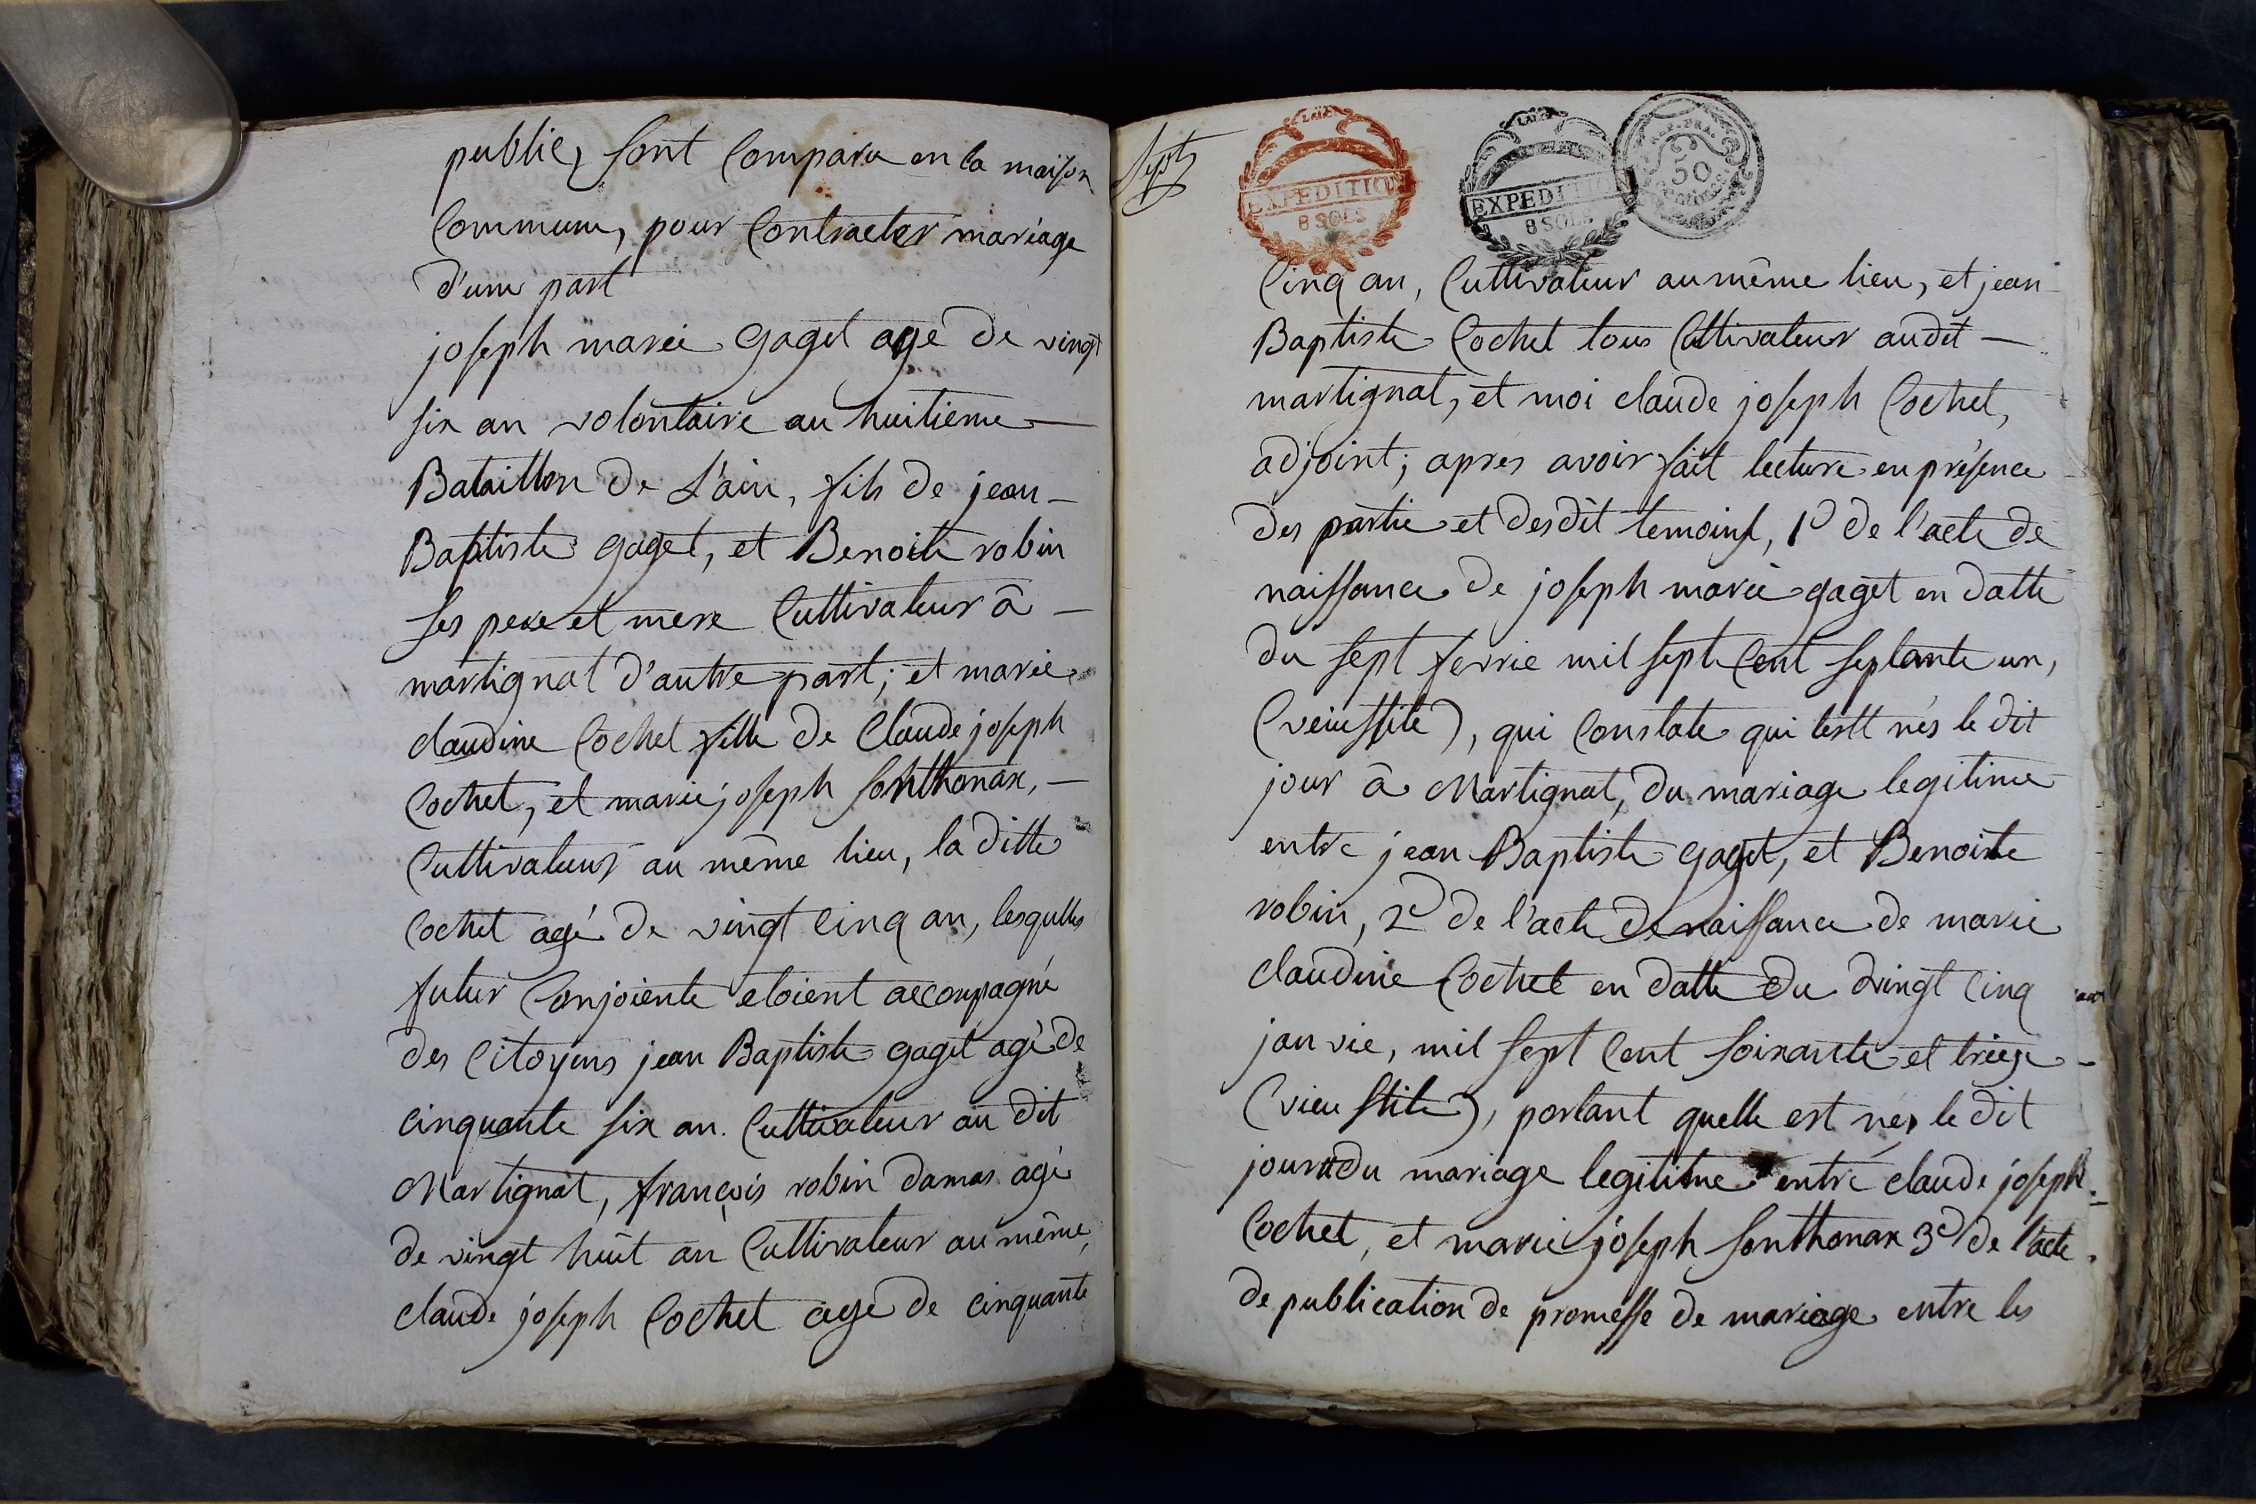 public, sont Comparu en la maison
Commune, pour Contracter mariage
d'une part
joseph marie gaget agé de vingt
six an volontaire au huitieme
Bataillon de L'ain, fils de jean
Baptiste gaget, et Benoite robin
ses pere et mere Cultivateur â
martignat d'autre part; et marie
claudine Cochet fille de Claude joseph
Cochet, et marie joseph sonthonax,
Cultivateurs au même lieu, la ditte
Cochet agé de vingt cinq an, lesqulles
futur Conjointe etoient accompagné
des Citoyens jean Baptiste gaget agé de
cinquante six an. Cultivateur au dit
Martignat, françois robin damas agé
de vingt huit an Cultivateur au même,
claude joseph Cochet agé de cinquante
sept
LAIN
EXPEDITION
8 SOLS
LAIN
EXPEDITION
8 SOLS
REP. FRA.
50
Cinq an, Cultivateur au même lieu, et jean
Baptiste Cochet tous Cultivateur audit
martignat, et moi claude joseph Cochet,
adjoint; aprés avoir fait lecture en présence
des partie et desdit temoins, 1º de l'acte de
naissance de joseph marie gaget en datte
du sept fevrie mil sept Cent septante un,
qui Constate qui nés le dit
jour â Martignat, du mariage legitime
entre jean Baptiste gaget, et Benoite
robin, 2º de l'acte de naissance de marie
claudine Cochet en datte du vingt cinq
janvie, mil sept Cent soixante et trieze
(vieu stile), portant quelle est nés le dit
jour du mariage legitime entre claude joseph
Cochet, et marie joseph sonthonax 3º de l'acte
de publication de promesse de mariage entre les